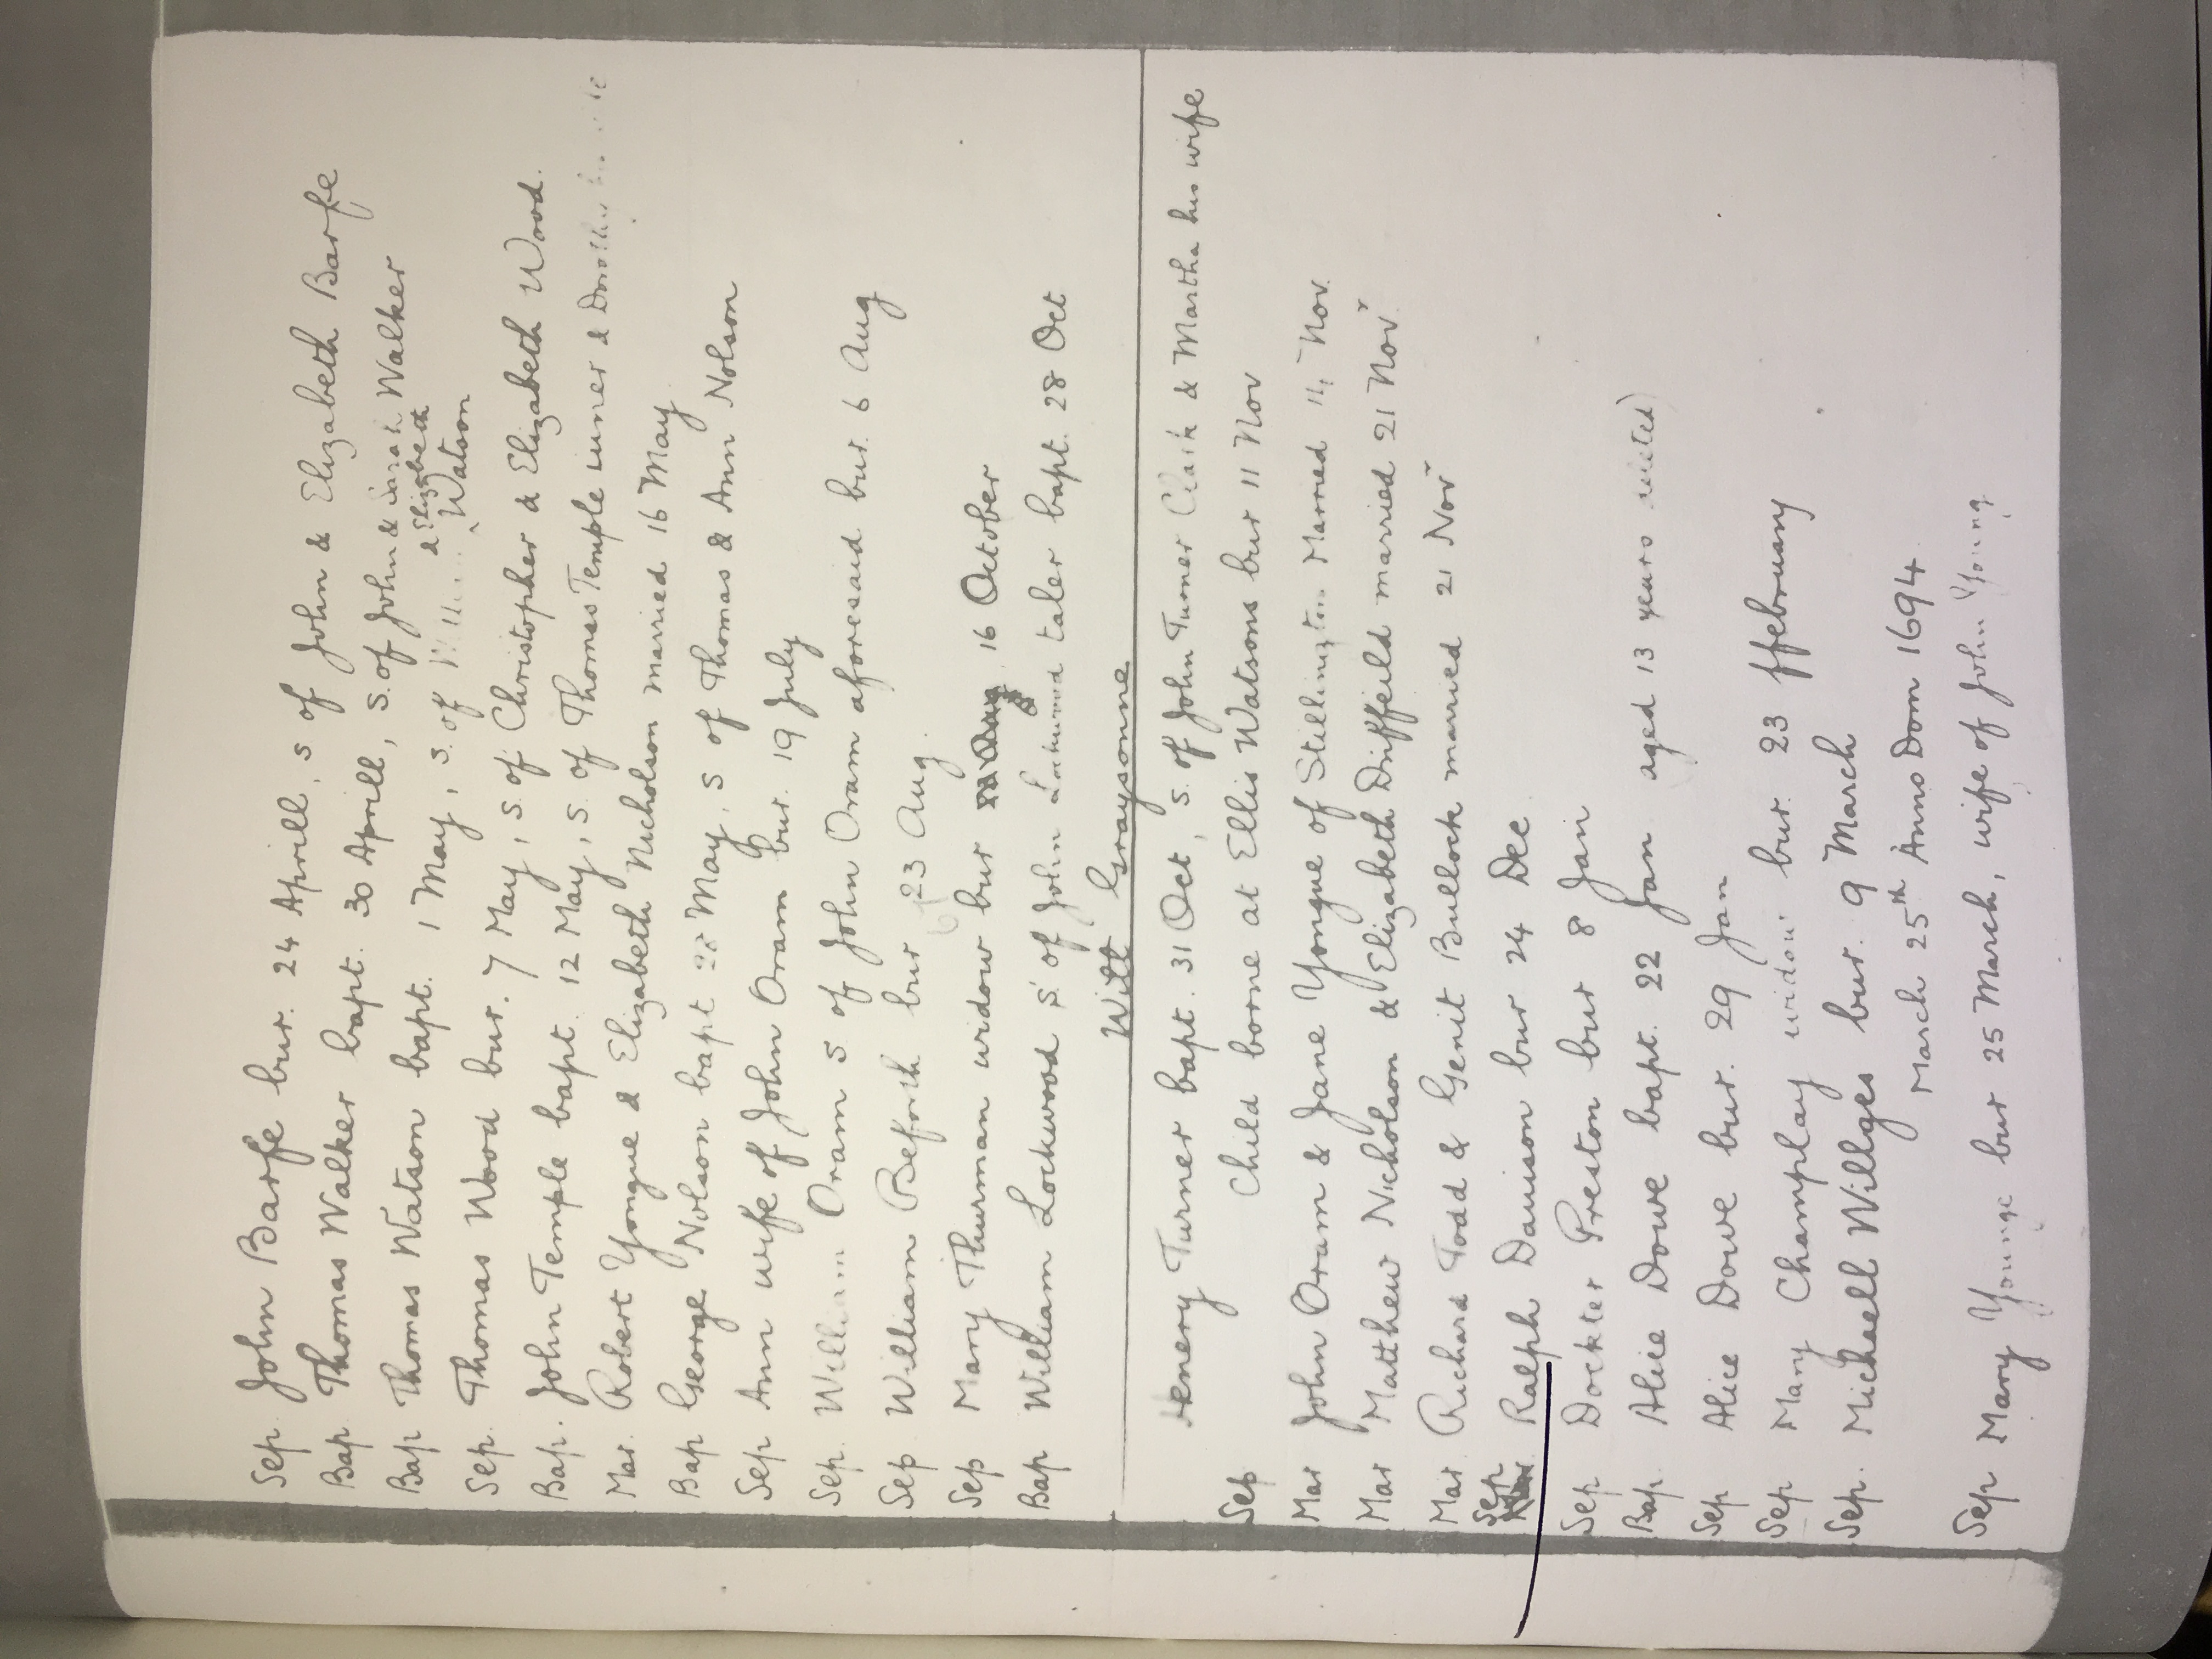 Sep. John Barfe bur. 24 Aprill, s of John & Elizabeth Barfe
Bap. Thomas Walker bapt. 30 Aprill, s. of John & Sarah Walker
Bap Thomas Watson bapt. 1 May, s. of & Elizabeth Watson
Sep. Thomas Wood bur. 7 May, s. of Christopher & Elizabeth Wood.
Bap. John Temple bapt. 12 May, s. of Thomas Temple & Dorothy
Mar. Robert Yongue & Elizabeth Nicholson married 16 May
Bap George Nolson bapt May, s of Thomas & Ann Nolson
Sep Ann wife of John Oram bur. 19 July
Sep. William Oram s of John Oram aforesaid bur. 6 Aug
Sep William Beforth bur 23 Aug.
Sep Mary Thurman widow bur 16 October
Bap William Lockwood s. of John Lockwood taler bapt. 28 Oct
Will Graysonne
Henery Turner bapt. 31 Oct, s. of John Turner Clark & Martha his wife
Sep Child borne at Ellis Watsons bur 11 Nov
Mar John Oram & Jane Yongue of Stillington Married 14 Nov.
Mar Matthew Nicholson & Elizabeth Driffeild married 21 Novr
Mar. Richard Todd & Genit Bullock married 21 Novr
Sep Ralph Davison bur 24 Dec
Sep Dockter Preston bur 8 Jan
Bap. Alice Dowe bapt. 22 Jan aged 13 years
Sep Alice Dowe bur. 29 Jan
Sep Mary Champlay widow bur. 23 ffebruary
Sep. Michaell Willges bur. 9 March
March 25th Anno Dom 1694
Sep Mary Younge bur 25 March, wife of John Young